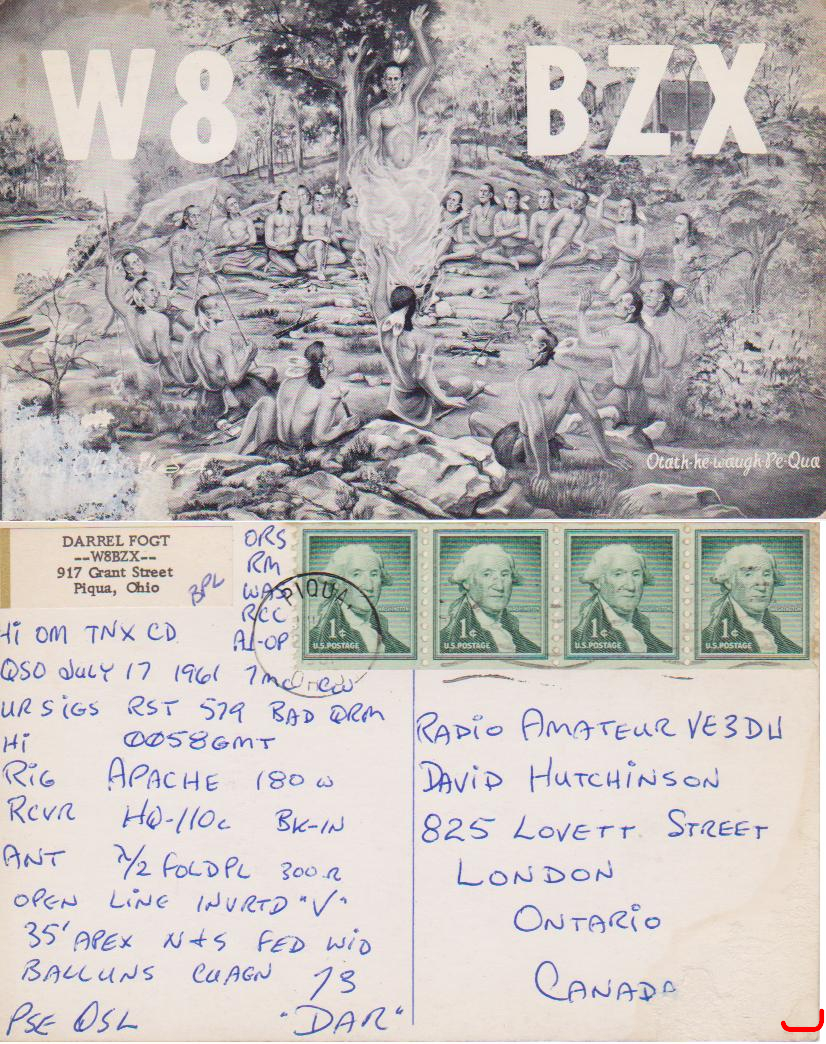 W8 BZX
Otath-he-waugh-Pe-Qua
DARREL FOGT
--W8BZX--
917 Grant Street
Piqua, Ohio
BPL
ORS
RM
WAS
RCC
A1-OP
PIQUA,
OHIO
WASHINGTON
1¢
U.S. POSTAGE
WASHINGTON
1¢
U.S. POSTAGE
WASHINGTON
1¢
U.S. POSTAGE
WASHINGTON
1¢
U.S. POSTAGE
Hi OM TNX CD
QSO July 17 1961 7mc CW
UR SiGS RST 579 BAD QRM
Hi 0058GMT
RiG APACHE 180 W
RCVR HQ-110C BK-IN
ANT λ/2 FOLDPL 300Ω
OPEN LINE INVRTD "V"
35' APEX N+S FED WiD
BALLUNS CUAGN 73
PSE QSL "DAR"
RADiO AMATEUR VE3DU
DAViD HUTCHINSON
825 LOVETT STREET
LONDON
ONTARiO
CANADA